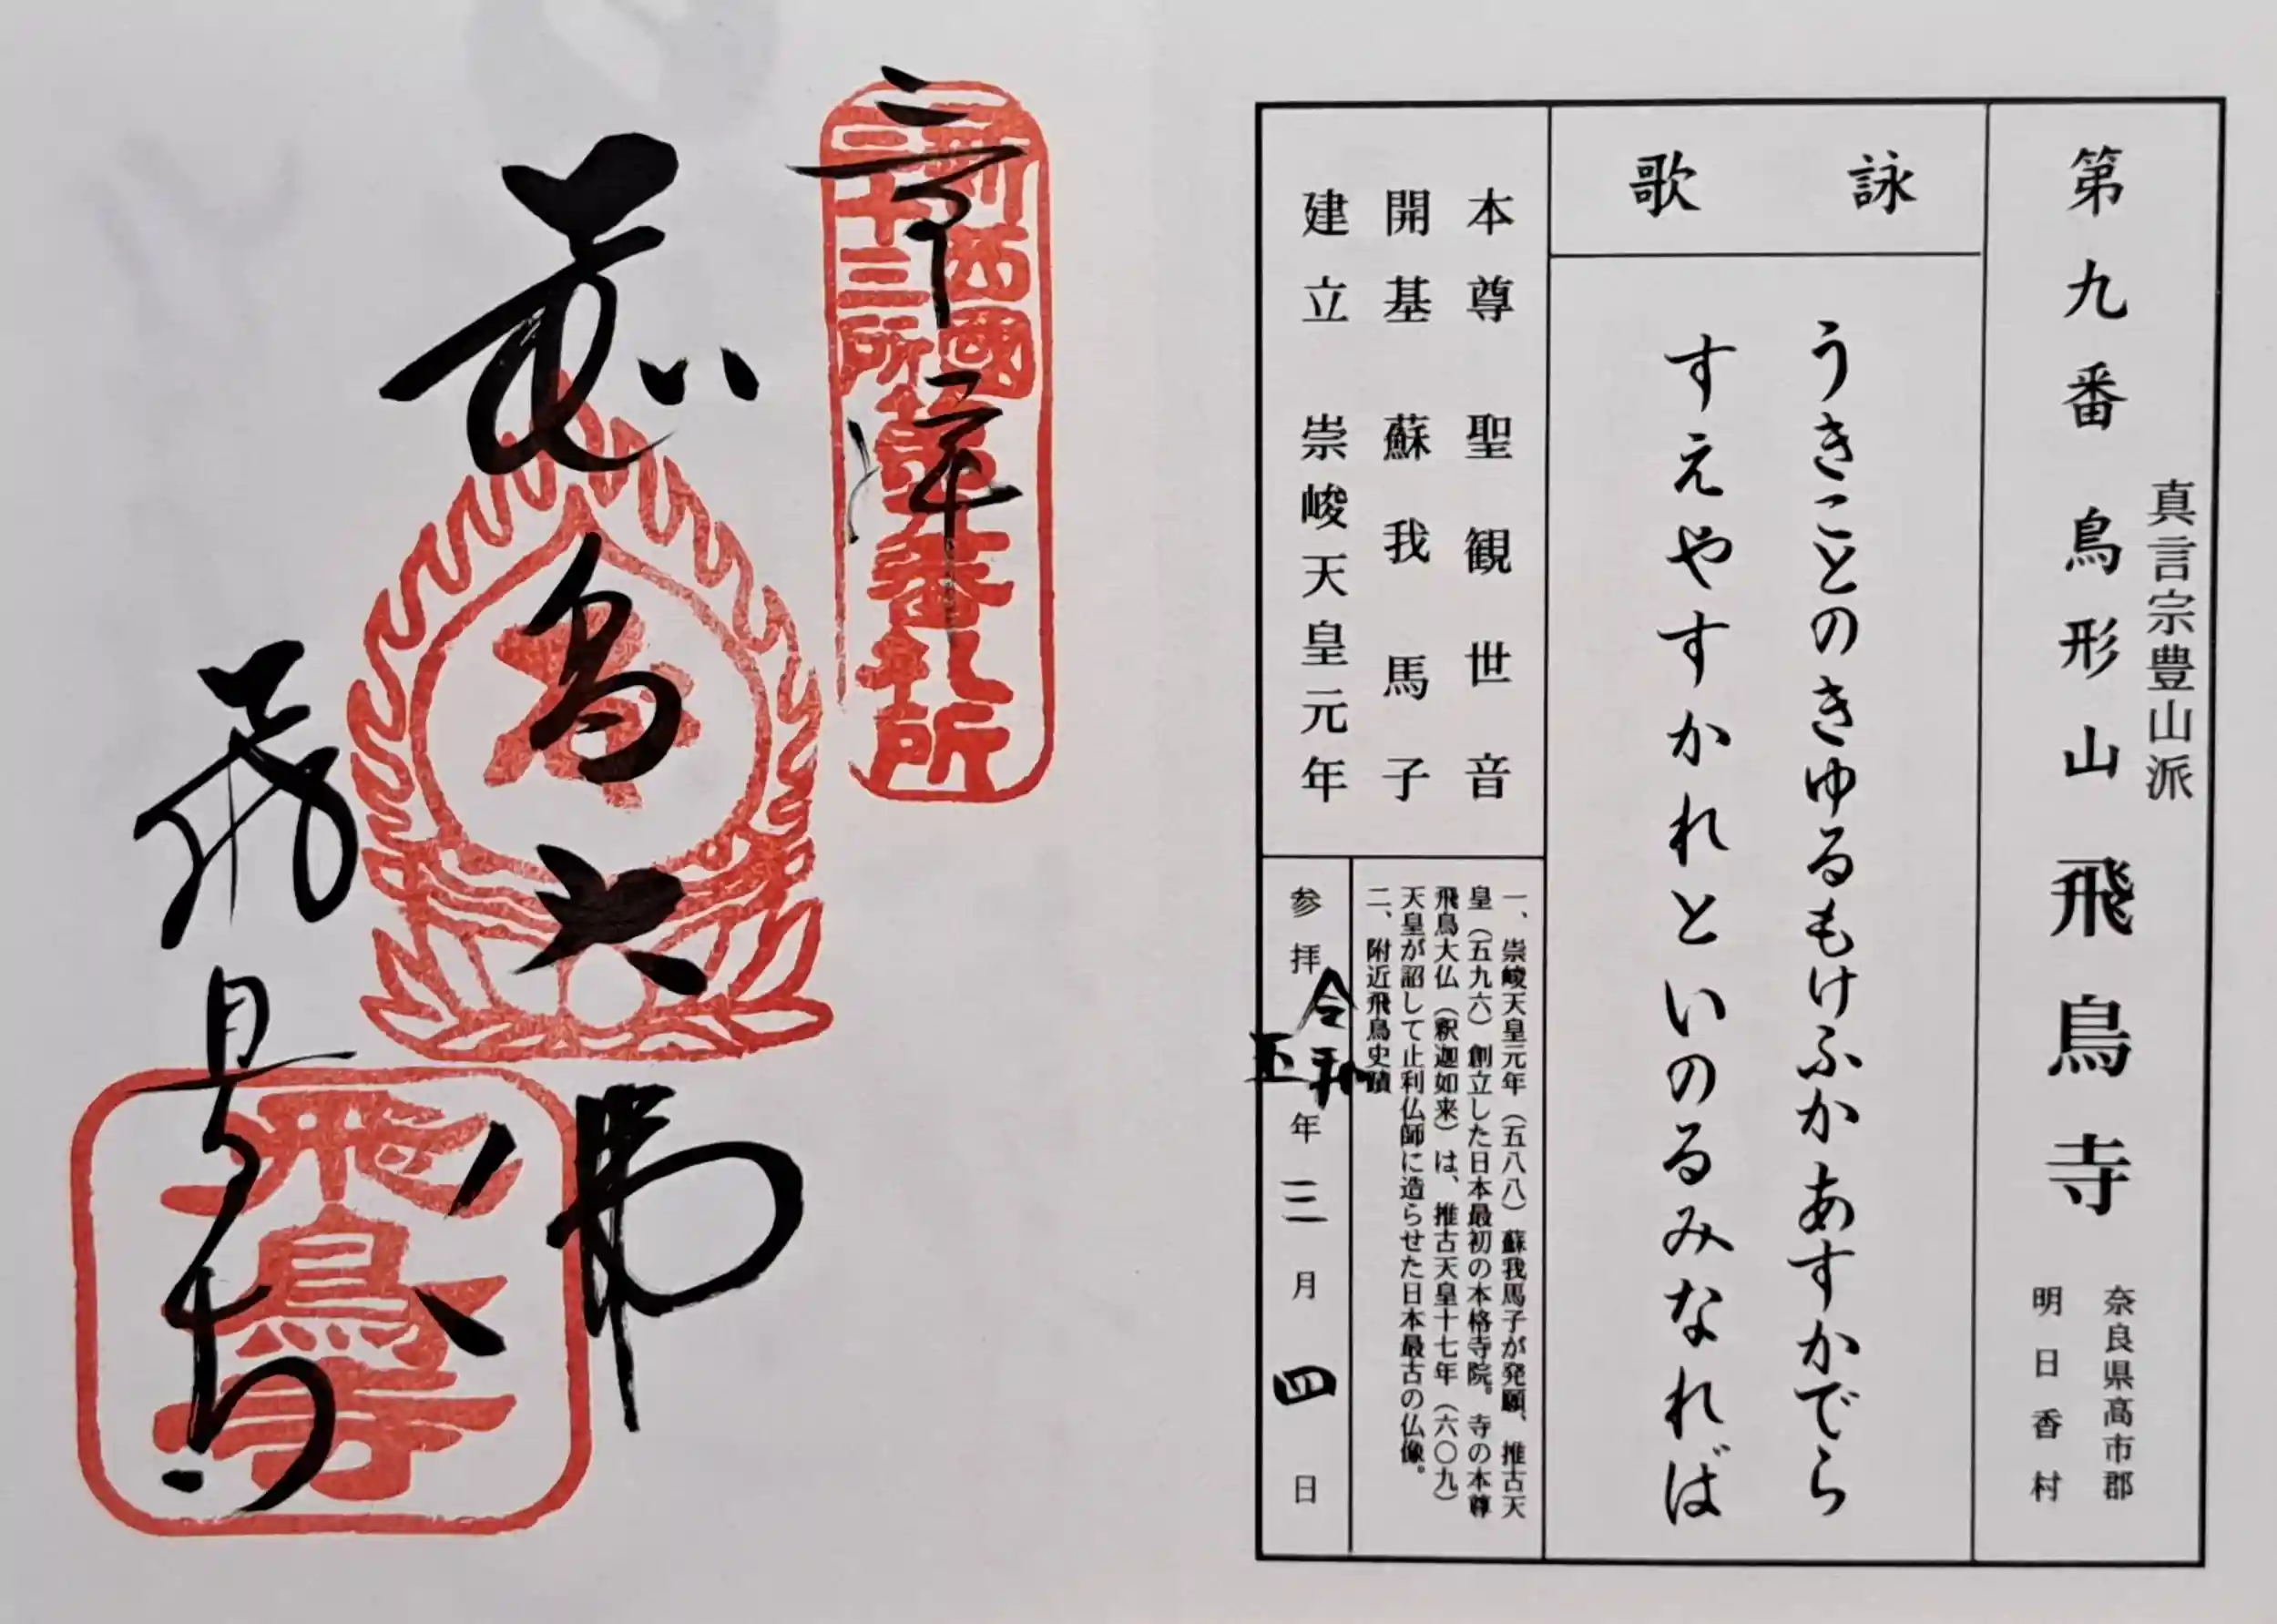 真言宗豊山派
第九番 鳥形山 飛鳥寺
奈良県高市郡
明日香村
詠歌
うきことのきゆるもけふかあすかでら
すえやすかれといのるみなれば
本尊 聖観世音
開基 蘇我馬子
建立 崇峻天皇元年
一、崇峻天皇元年（五八八）蘇我馬子が発願、推古天
皇（五九六）創立した日本最初の本格寺院。寺の本尊
飛鳥大仏（釈迦如来）は、推古天皇十七年（六〇九）
天皇が詔して止利仏師に造らせた日本最古の仏像。
二、附近飛鳥史蹟
参拝 令和五年三月四日
新西國
三十三所
第九番札所
奉拝
飛鳥大佛
飛鳥寺
飛鳥寺